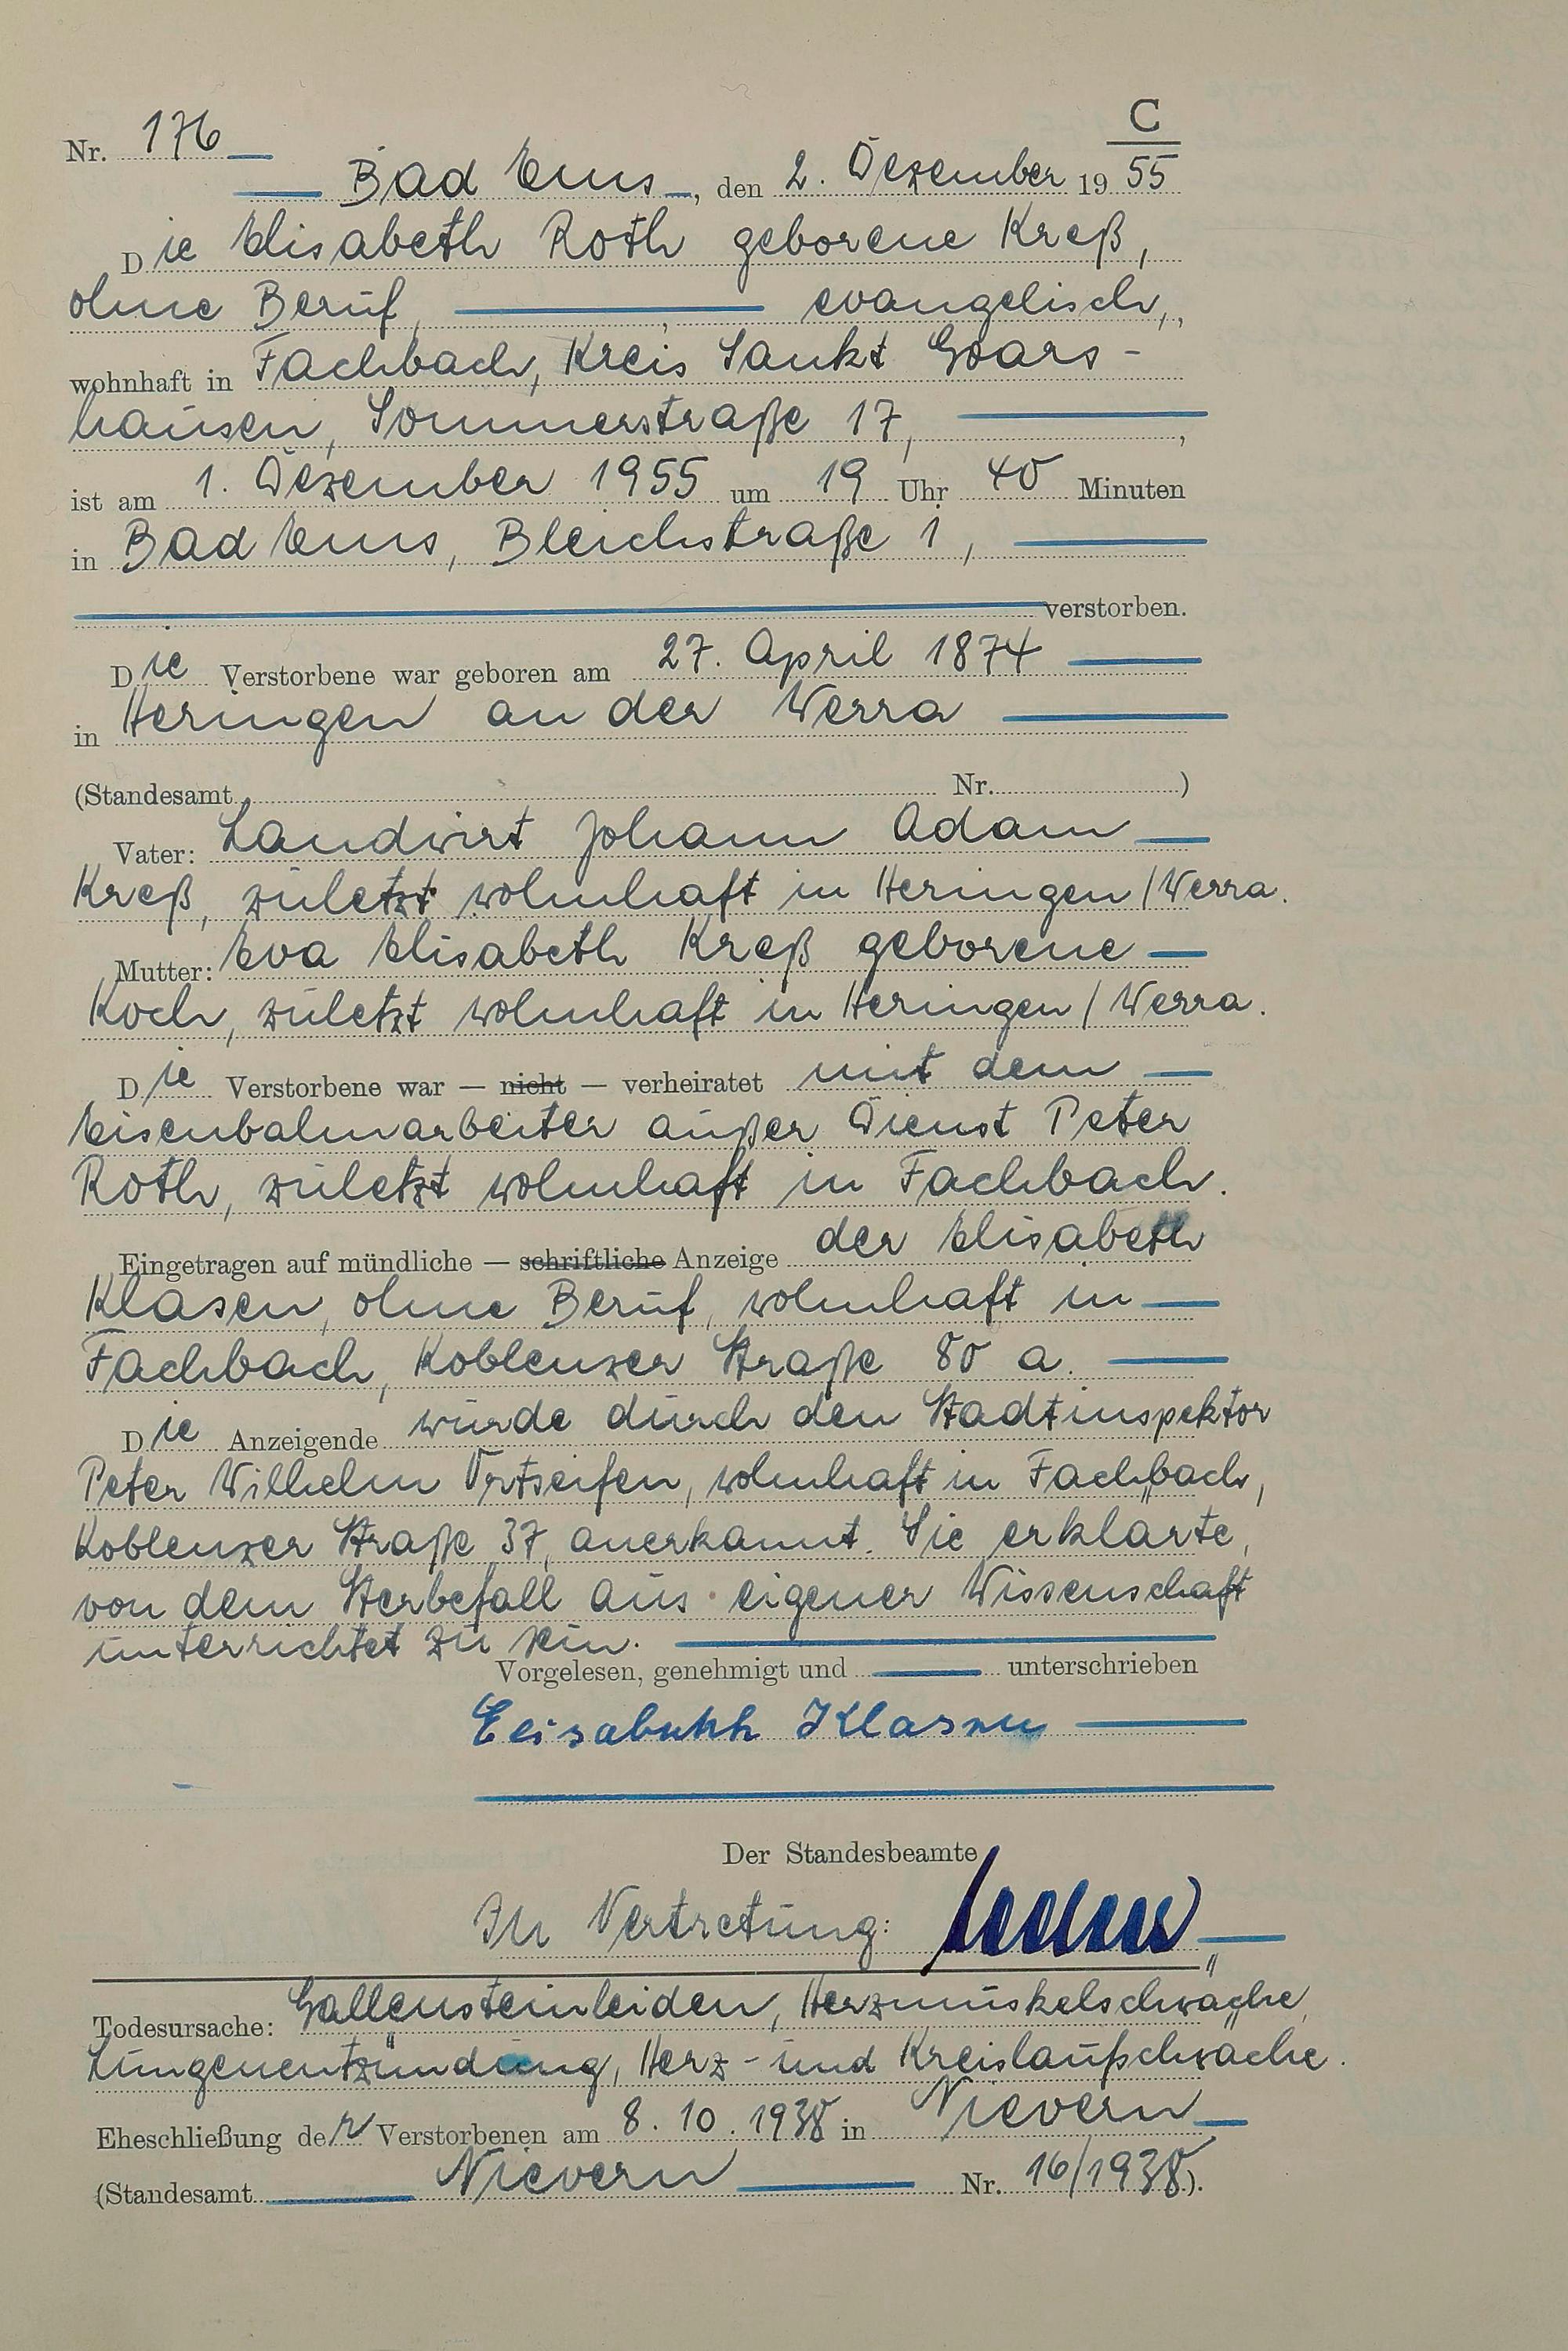 C
Nr. 176
Bad Ems, den 2. Dezember 19 55
Die Elisabeth Roth geborene Kreß,
ohne Beruf, evangelisch,
wohnhaft in Fachbach, Kreis Sankt Goars-
hausen, Sommerstraße 17,
ist am 1. Dezember 1955 um 19 Uhr 40 Minuten
in Bad Ems, Bleichstraße 1,
verstorben.
Die Verstorbene war geboren am 27. April 1874
in Heringen an der Werra
(Standesamt Nr. )
Vater: Landwirt Johann Adam
Kreß, zuletzt wohnhaft in Heringen/Werra.
Mutter: Eva Elisabeth Kreß geborene
Koch, zuletzt wohnhaft in Heringen/Werra.
Die Verstorbene war — nicht — verheiratet mit dem
Eisenbahnarbeiter außer Dienst Peter
Roth, zuletzt wohnhaft in Fachbach.
Eingetragen auf mündliche — schriftliche Anzeige der Elisabeth
Klasen, ohne Beruf, wohnhaft in
Fachbach, Koblenzer Straße 80 a.
Die Anzeigende wurde durch den Stadtinspektor
Peter Wilhelm Ortseifen, wohnhaft in Fachbach,
Koblenzer Straße 37, anerkannt. Sie erklärte,
von dem Sterbefall aus eigener Wissenschaft
unterrichtet zu sein.
Vorgelesen, genehmigt und unterschrieben
Elisabeth Klasen
Der Standesbeamte
In Vertretung:
Todesursache: Gallensteinleiden, Herzmuskelschwäche,
Lungenentzündung, Herz- und Kreislaufschwäche.
Eheschließung der Verstorbenen am 8. 10. 1938 in Nievern
(Standesamt Nievern Nr. 16/1938).